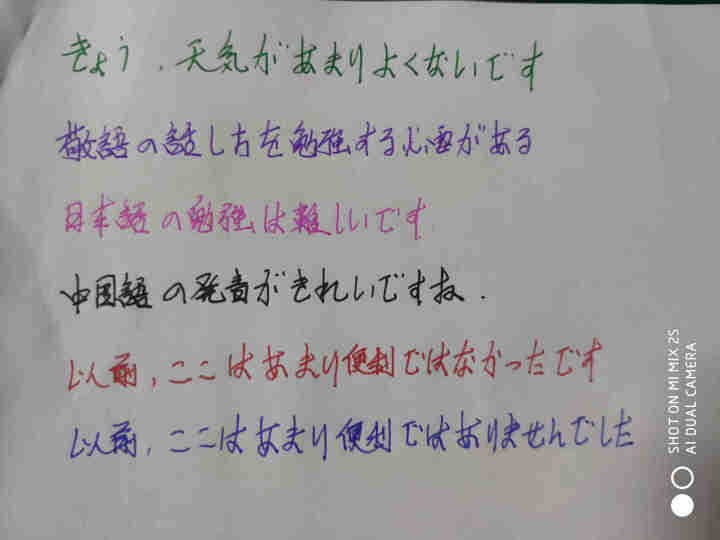 きょう、天気があまりよくないです
敬語の話し方を勉強する必要がある
日本語の勉強は難しいです
中国語の発音がきれいですね.
以前,ここはあまり便利ではなかったです
以前,ここはあまり便利ではありませんでした
SHOT ON MI MIX 2S
AI DUAL CAMERA